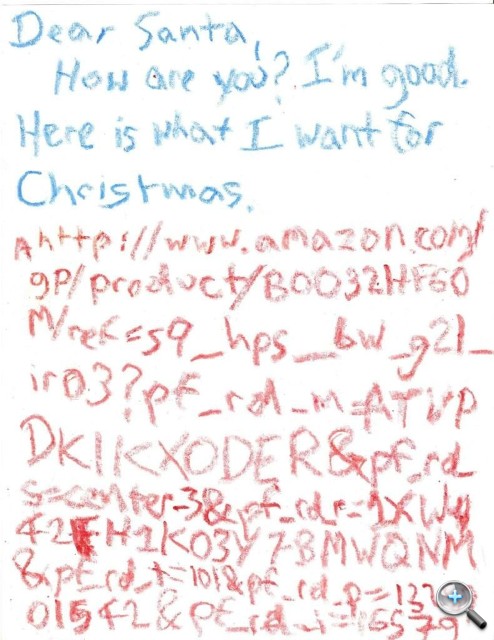 Dear Santa,
How are you? I'm good.
Here is what I want for
Christmas.
http://www.amazon.com/
gp/product/B0032HF60
M/ref=s9_hps_bw_g21_
ir03?pf_rd_m=ATVP
DKIKX0DER&pf_rd_
s=center-3&pf_rd_r=1XWY
42FH1K03Y78MWQNM
&pf_rd_t=101&pf_rd_p=
01542&pf_rd_i=16579